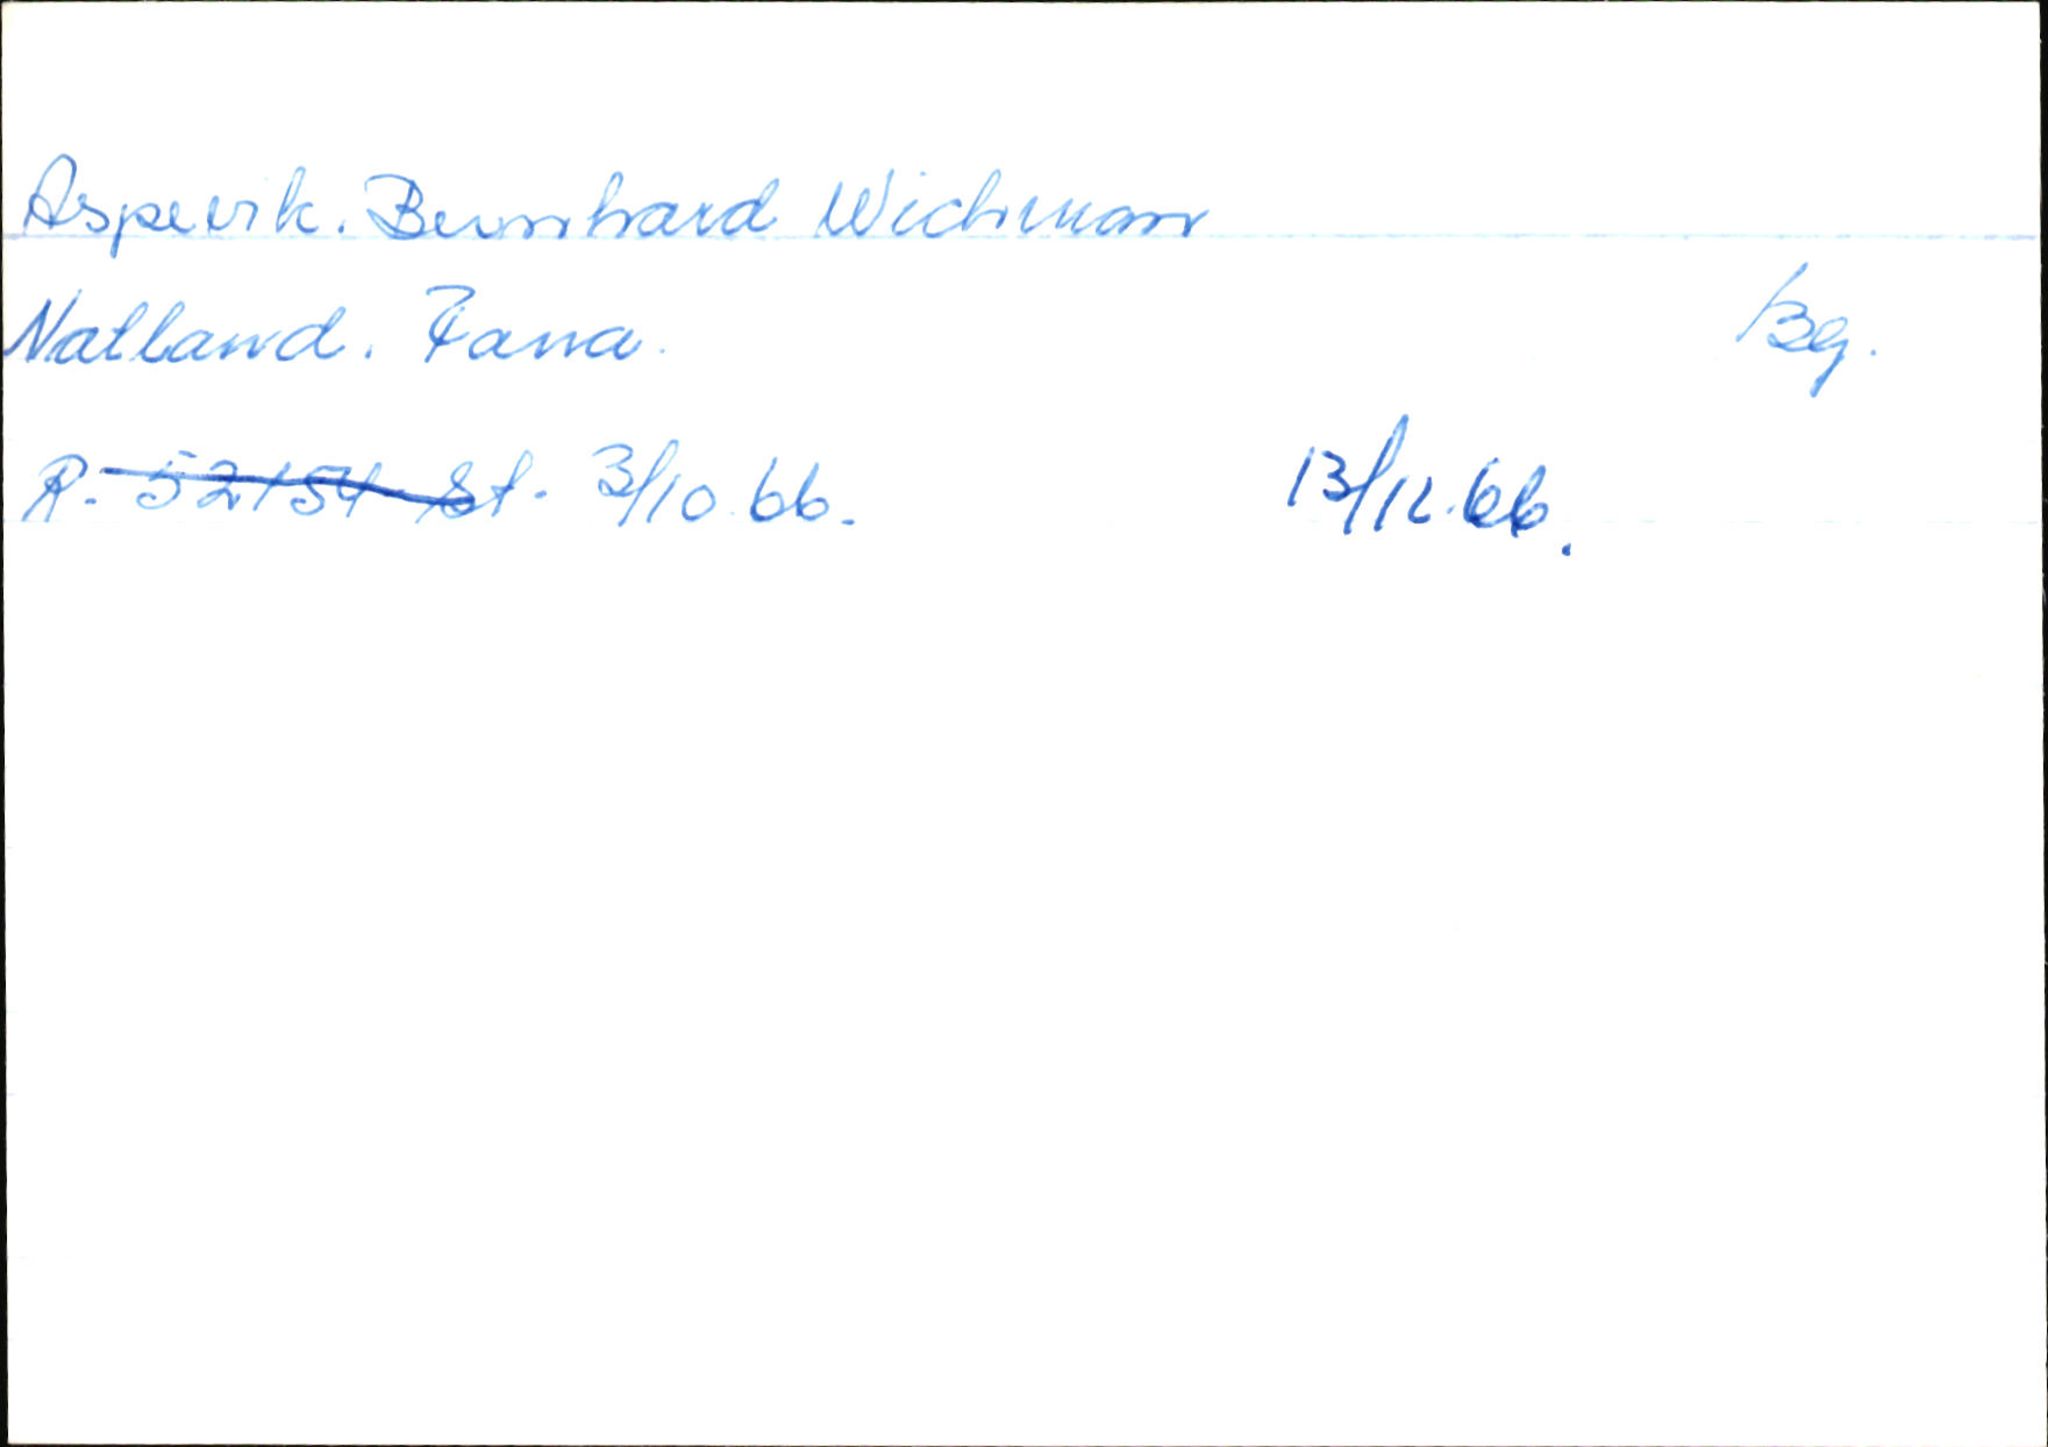 Aspevik. Bernhard Wichman
Natland. Fana. Bg.
R. 52154 St. 3/10.66. 13/12.66.